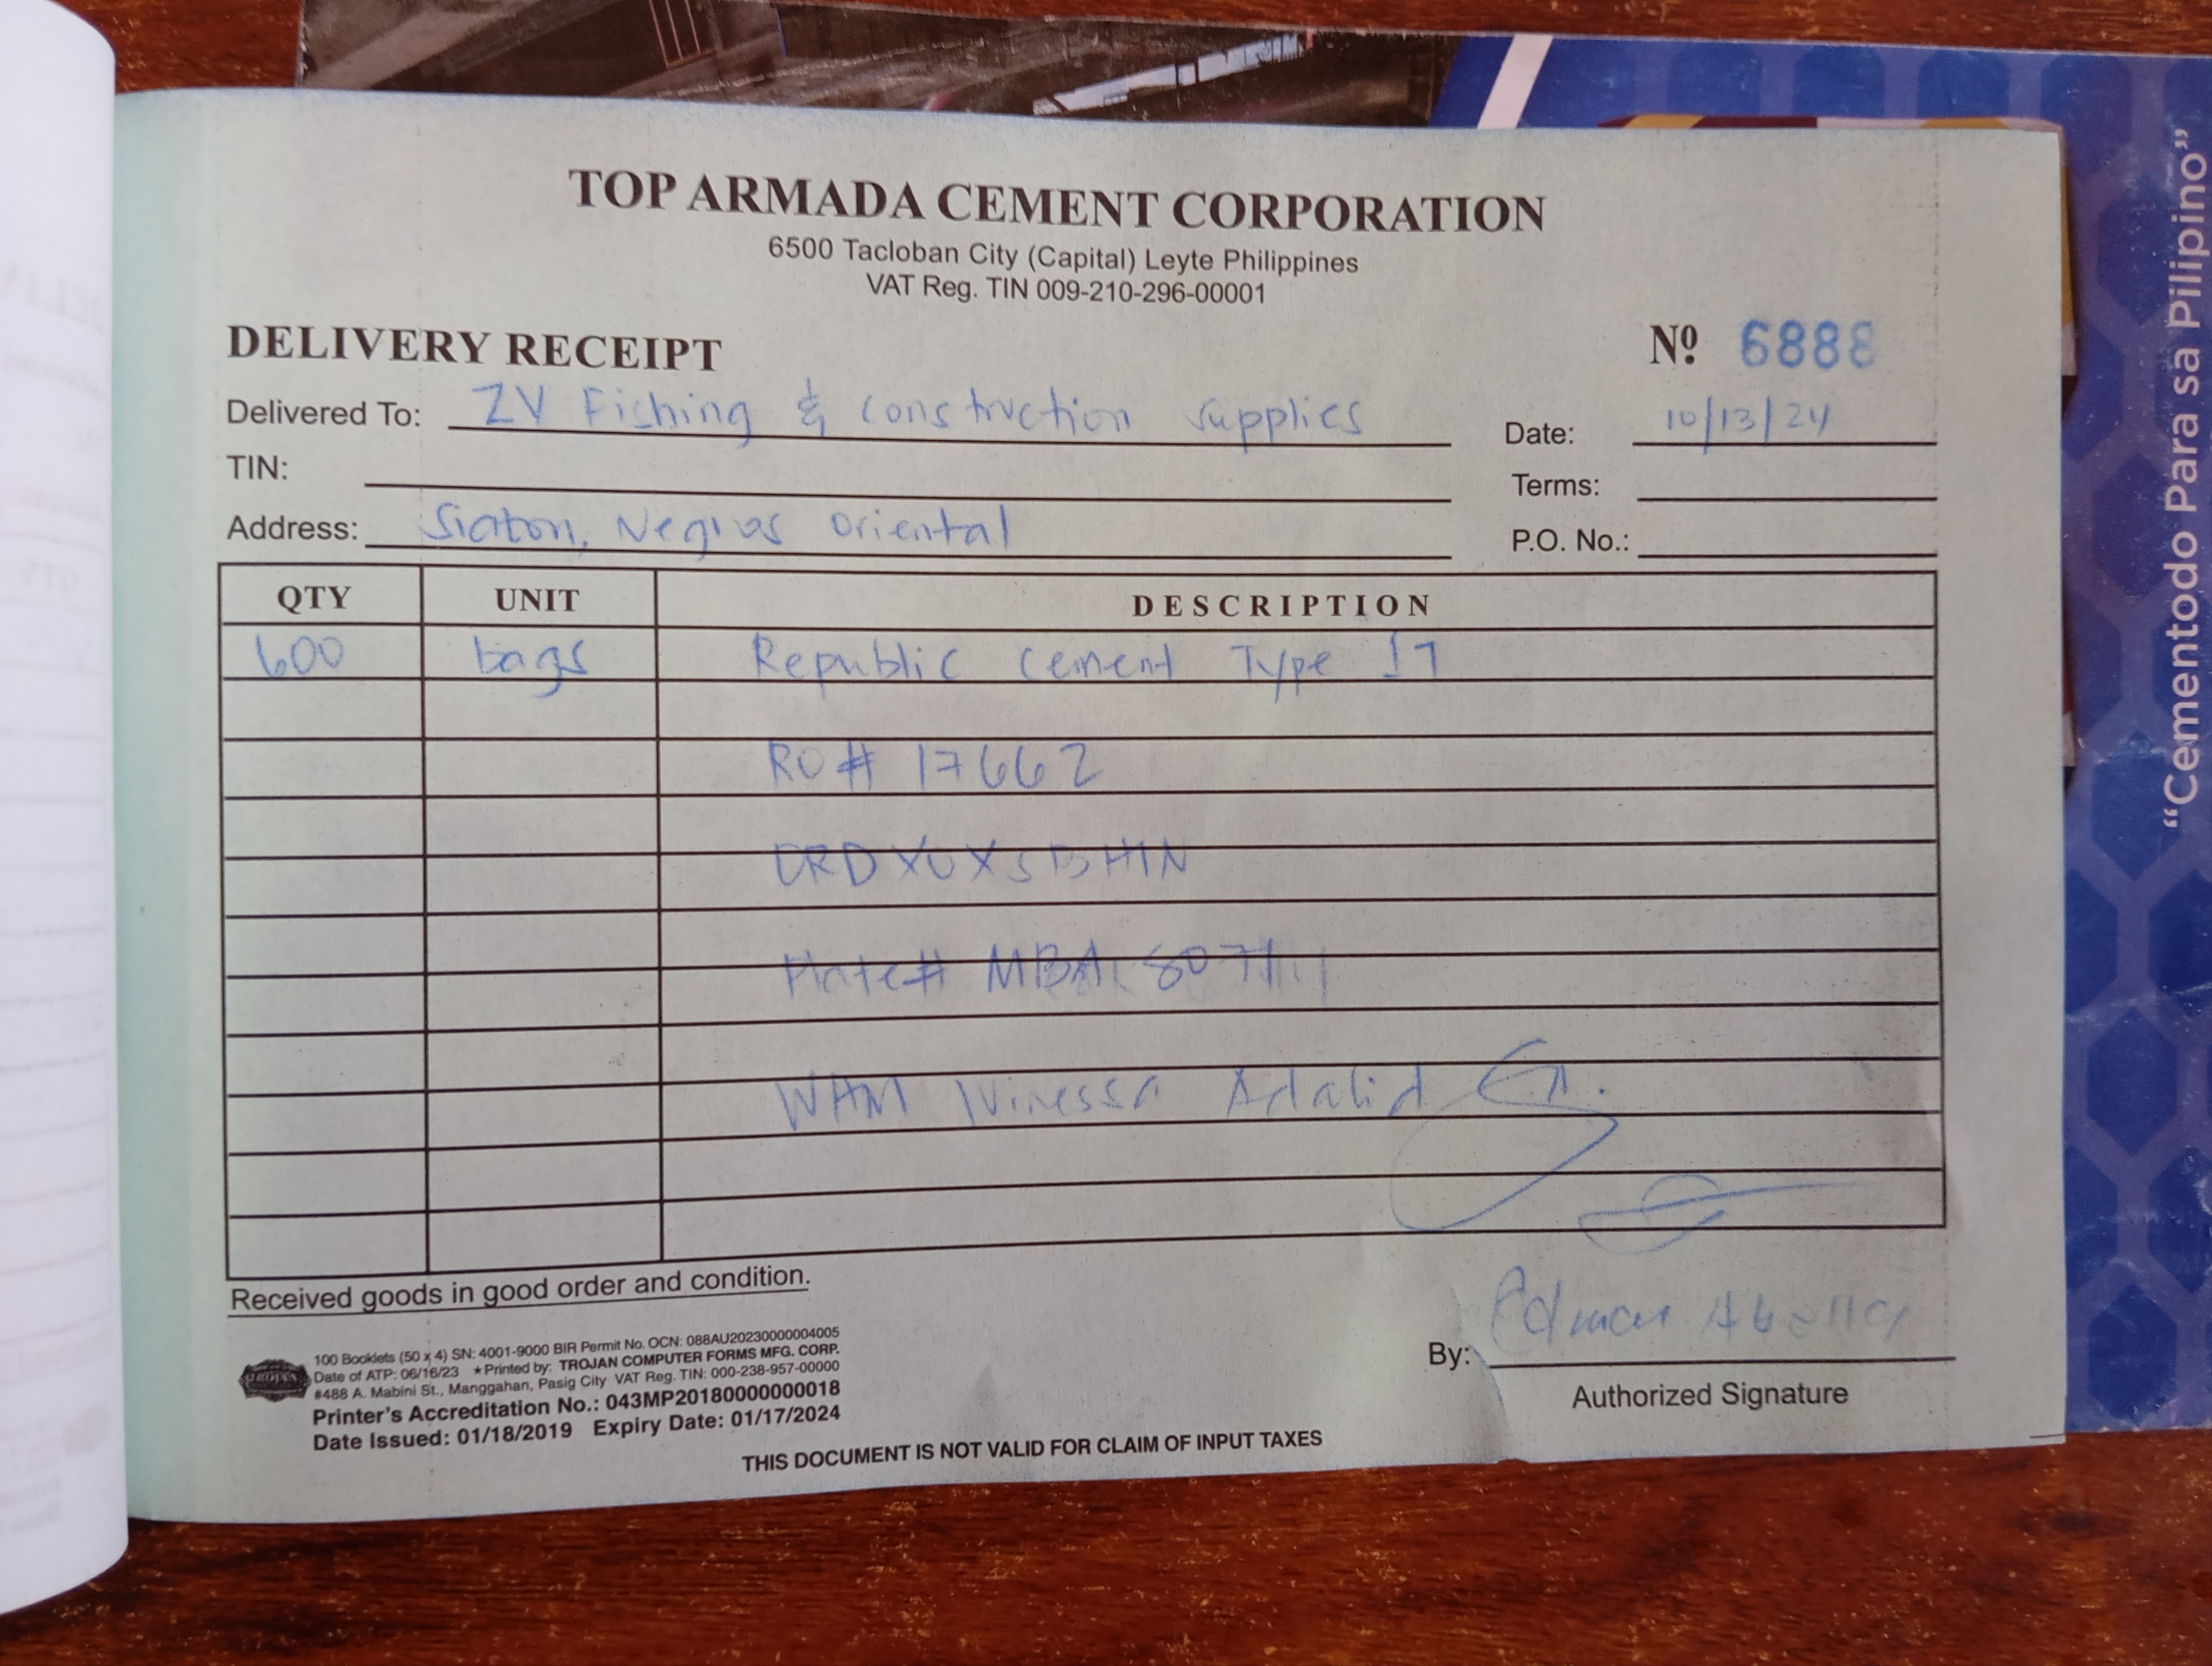 TOP ARMADA CEMENT CORPORATION
6500 Tacloban City (Capital) Leyte Philippines
VAT Reg. TIN 009-210-296-00001
DELIVERY RECEIPT
Nº 6888
Delivered To: ZV Fishing & construction supplies
Date: 10/13/24
TIN:
Terms:
Address: Siaton, Negros Oriental
P.O. No.:
QTY UNIT DESCRIPTION
600 bags Republic cement Type 1T
RO# 17662
Plate# MBA 8071
WHM Winessa Adalid
Received goods in good order and condition.
By: Abella
Authorized Signature
100 Booklets (50 x 4) SN: 4001-9000 BIR Permit No. OCN: 088AU20230000004005
Date of ATP: 06/16/23 ★Printed by: TROJAN COMPUTER FORMS MFG. CORP.
#488 A. Mabini St., Manggahan, Pasig City VAT Reg. TIN: 000-238-957-00000
Printer's Accreditation No.: 043MP20180000000018
Date Issued: 01/18/2019 Expiry Date: 01/17/2024
TROJAN
THIS DOCUMENT IS NOT VALID FOR CLAIM OF INPUT TAXES
"Cementodo Para sa Pilipino"